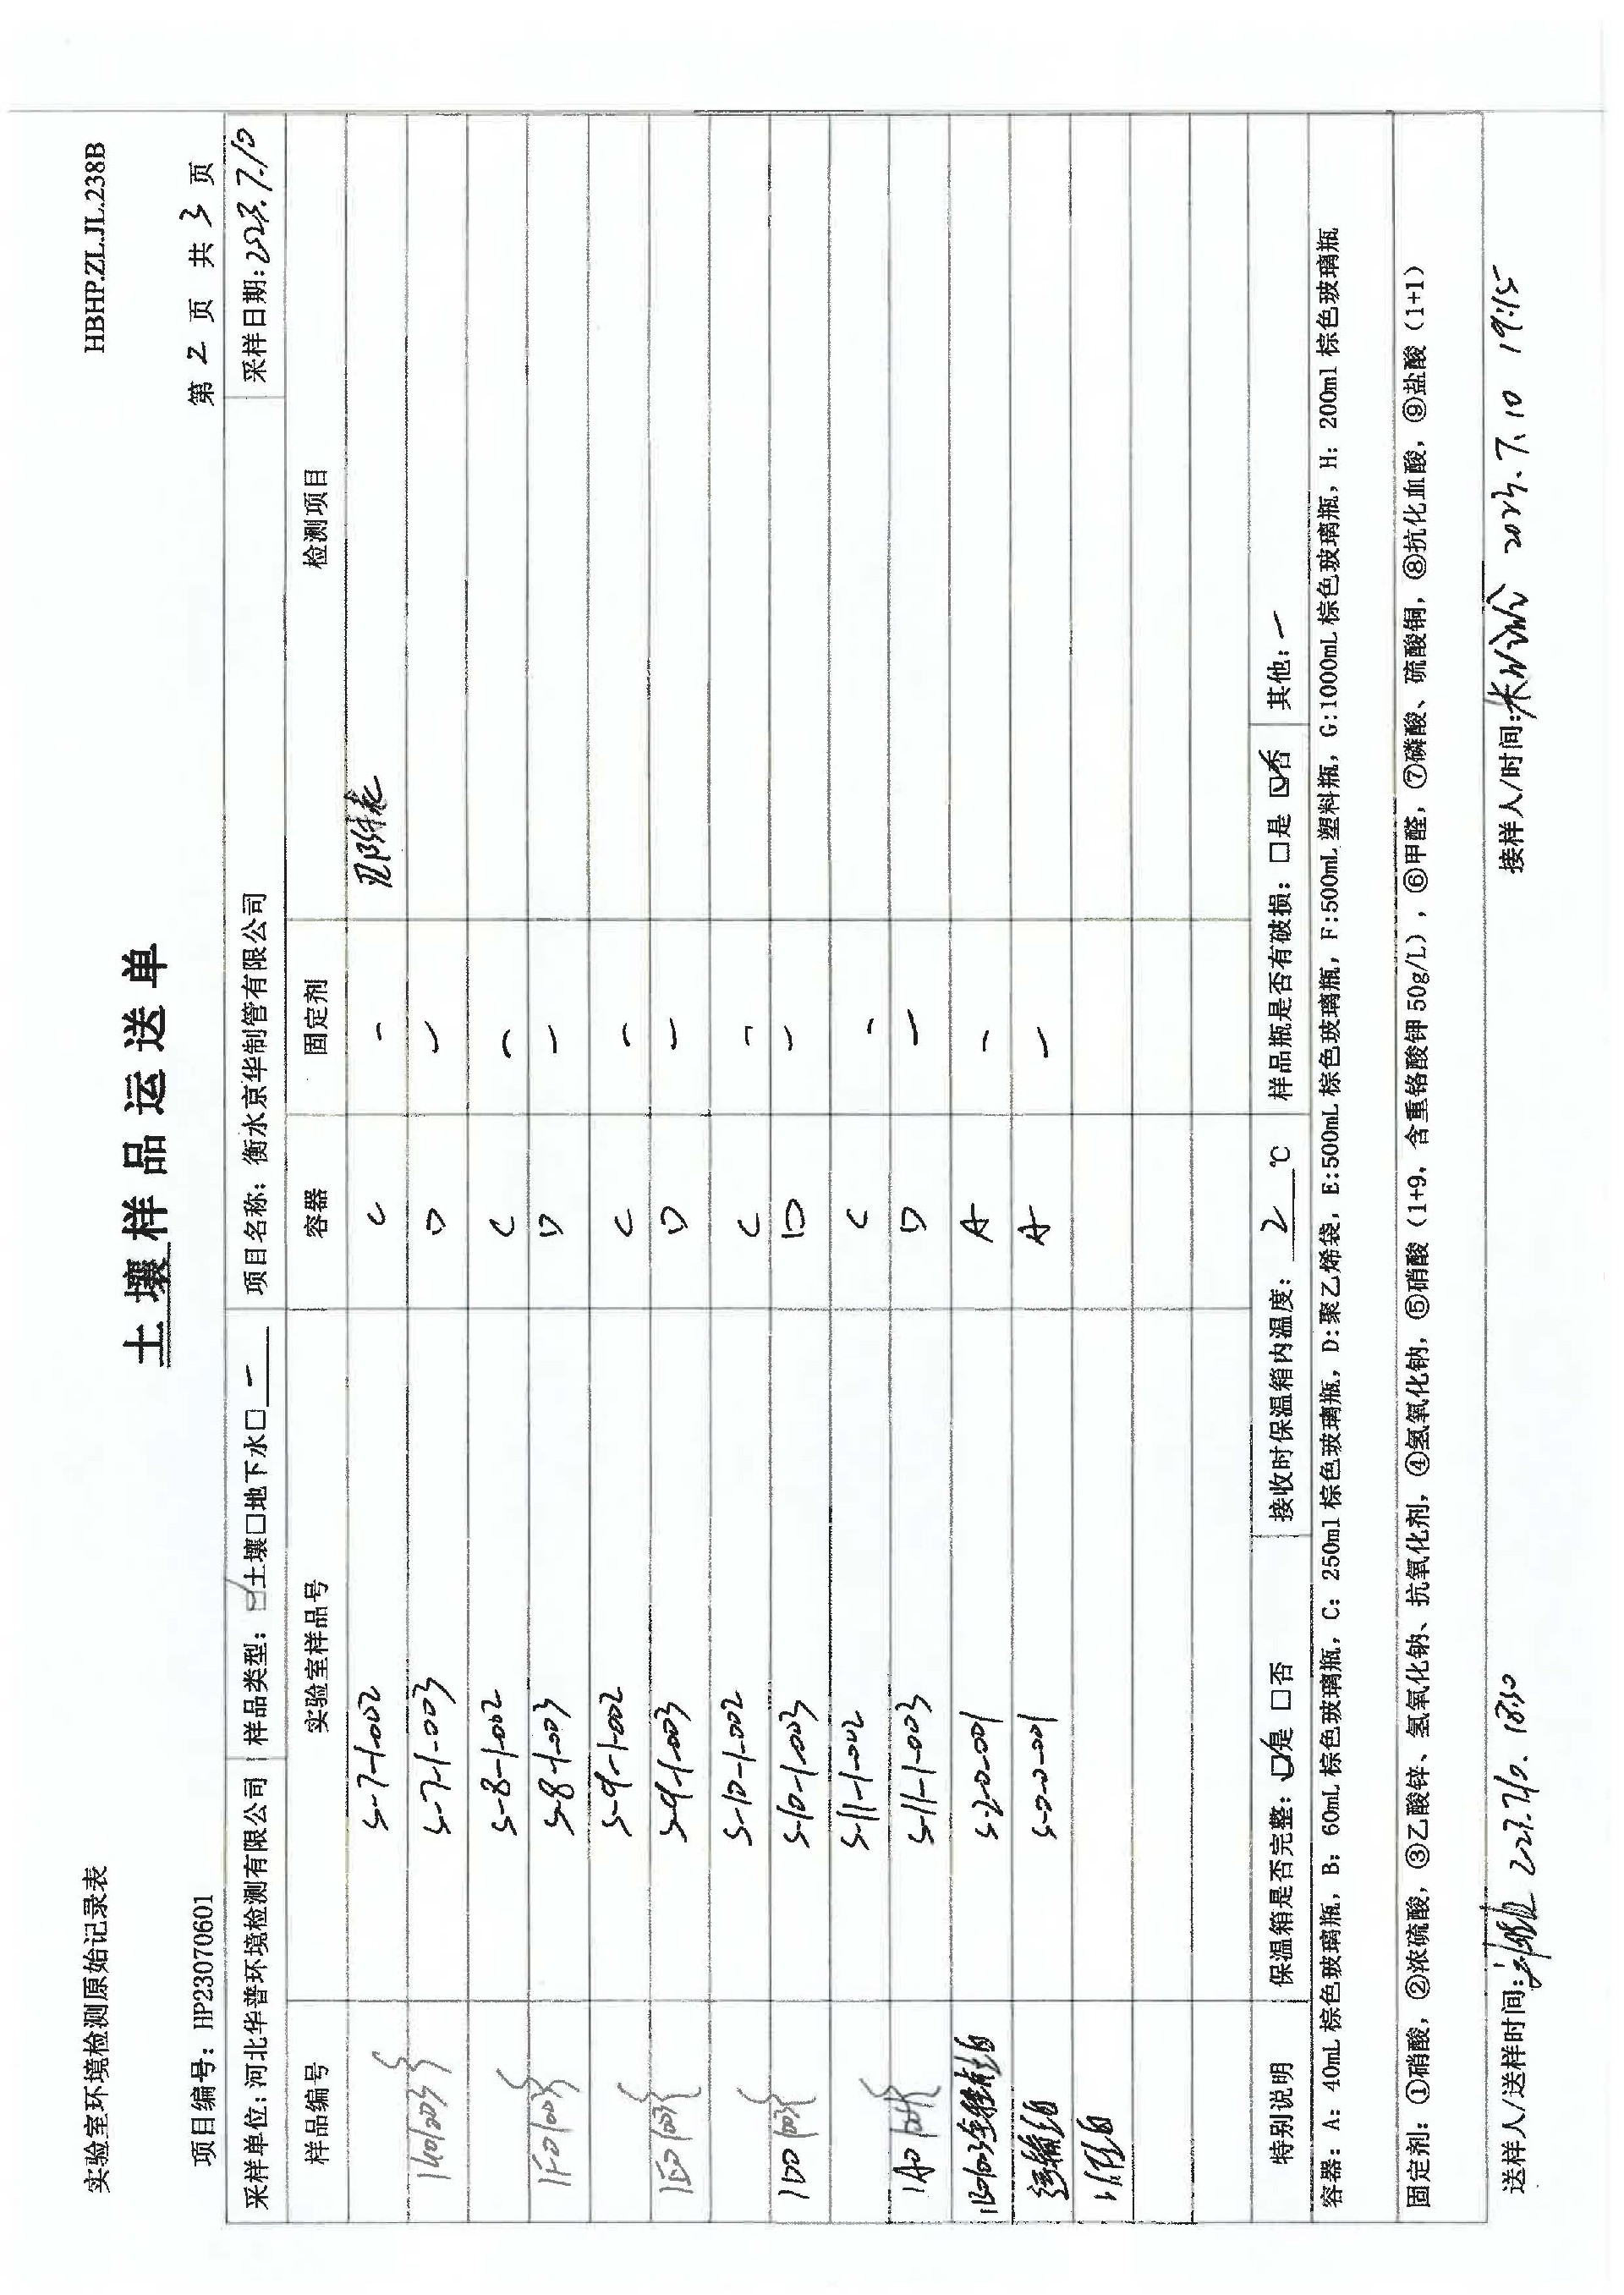 实验室环境检测原始记录表 HBHP.ZL.JL.238B
土壤样品运送单
项目编号：HP23070601 第 2 页 共 3 页
采样单位：河北华普环境检测有限公司 样品类型：☑土壤□地下水□ — 项目名称：衡水京华制管有限公司 采样日期：2023.7.10
样品编号 实验室样品号 容器 固定剂 检测项目
S-7-1-002 C — 见附表
S-7-1-003 D —
S-8-1-002 C —
S-8-1-003 D —
S-9-1-002 C —
S-9-1-003 D —
S-10-1-002 C —
1D0 S-10-1-003 D —
S-11-1-002 C —
1A0 S-11-1-003 D —
S-2-0-001 A —
运输空白 S-0-0-001 A —
以下空白
特别说明 保温箱是否完整：☑是 □否 接收时保温箱内温度： 2 ℃ 样品瓶是否有破损：□是 ☑否 其他：—
容器：A：40mL 棕色玻璃瓶，B：60mL 棕色玻璃瓶，C：250ml 棕色玻璃瓶，D:聚乙烯袋，E:500mL 棕色玻璃瓶，F:500mL 塑料瓶，G:1000mL 棕色玻璃瓶，H：200ml 棕色玻璃瓶
固定剂：①硝酸，②浓硫酸，③乙酸锌、氢氧化钠、抗氧化剂，④氢氧化钠，⑤硝酸（1+9，含重铬酸钾 50g/L），⑥甲醛，⑦磷酸、硫酸铜，⑧抗化血酸，⑨盐酸（1+1）
送样人/送样时间： 2023.7.10. 18:30 接样人/时间： 2023.7.10 19:15